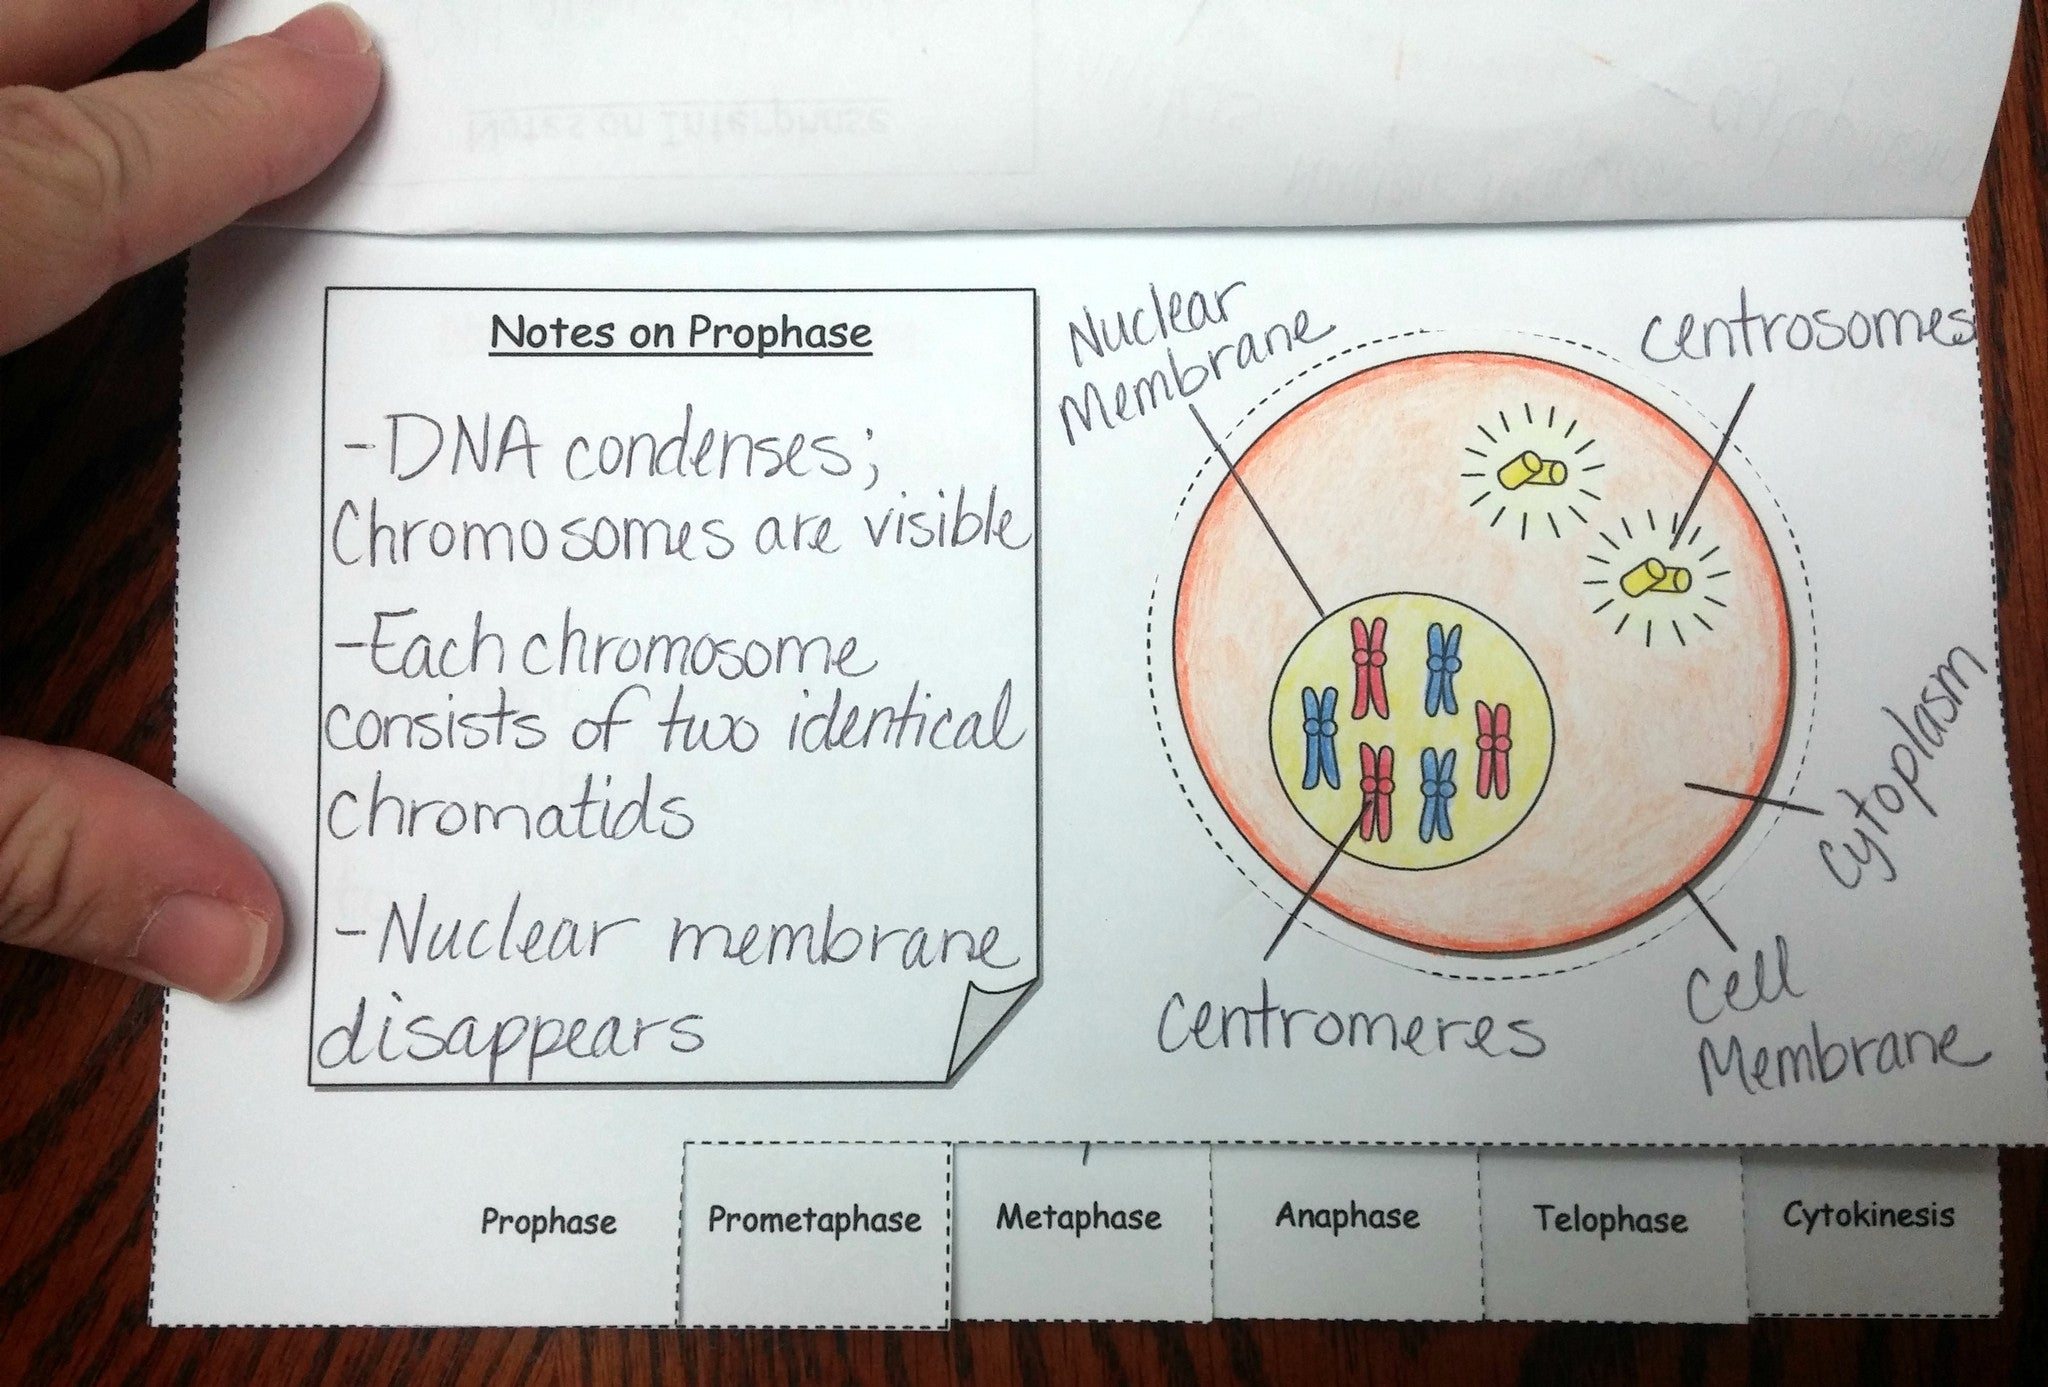 Notes on Interphase
Notes on Prophase
-DNA condenses;
Chromosomes are visible
-Each chromosome
consists of two identical
chromatids
-Nuclear membrane
disappears
Nuclear
Membrane
Centrosomes
Cytoplasm
Cell
Membrane
Centromeres
Prophase
Prometaphase
Metaphase
Anaphase
Telophase
Cytokinesis